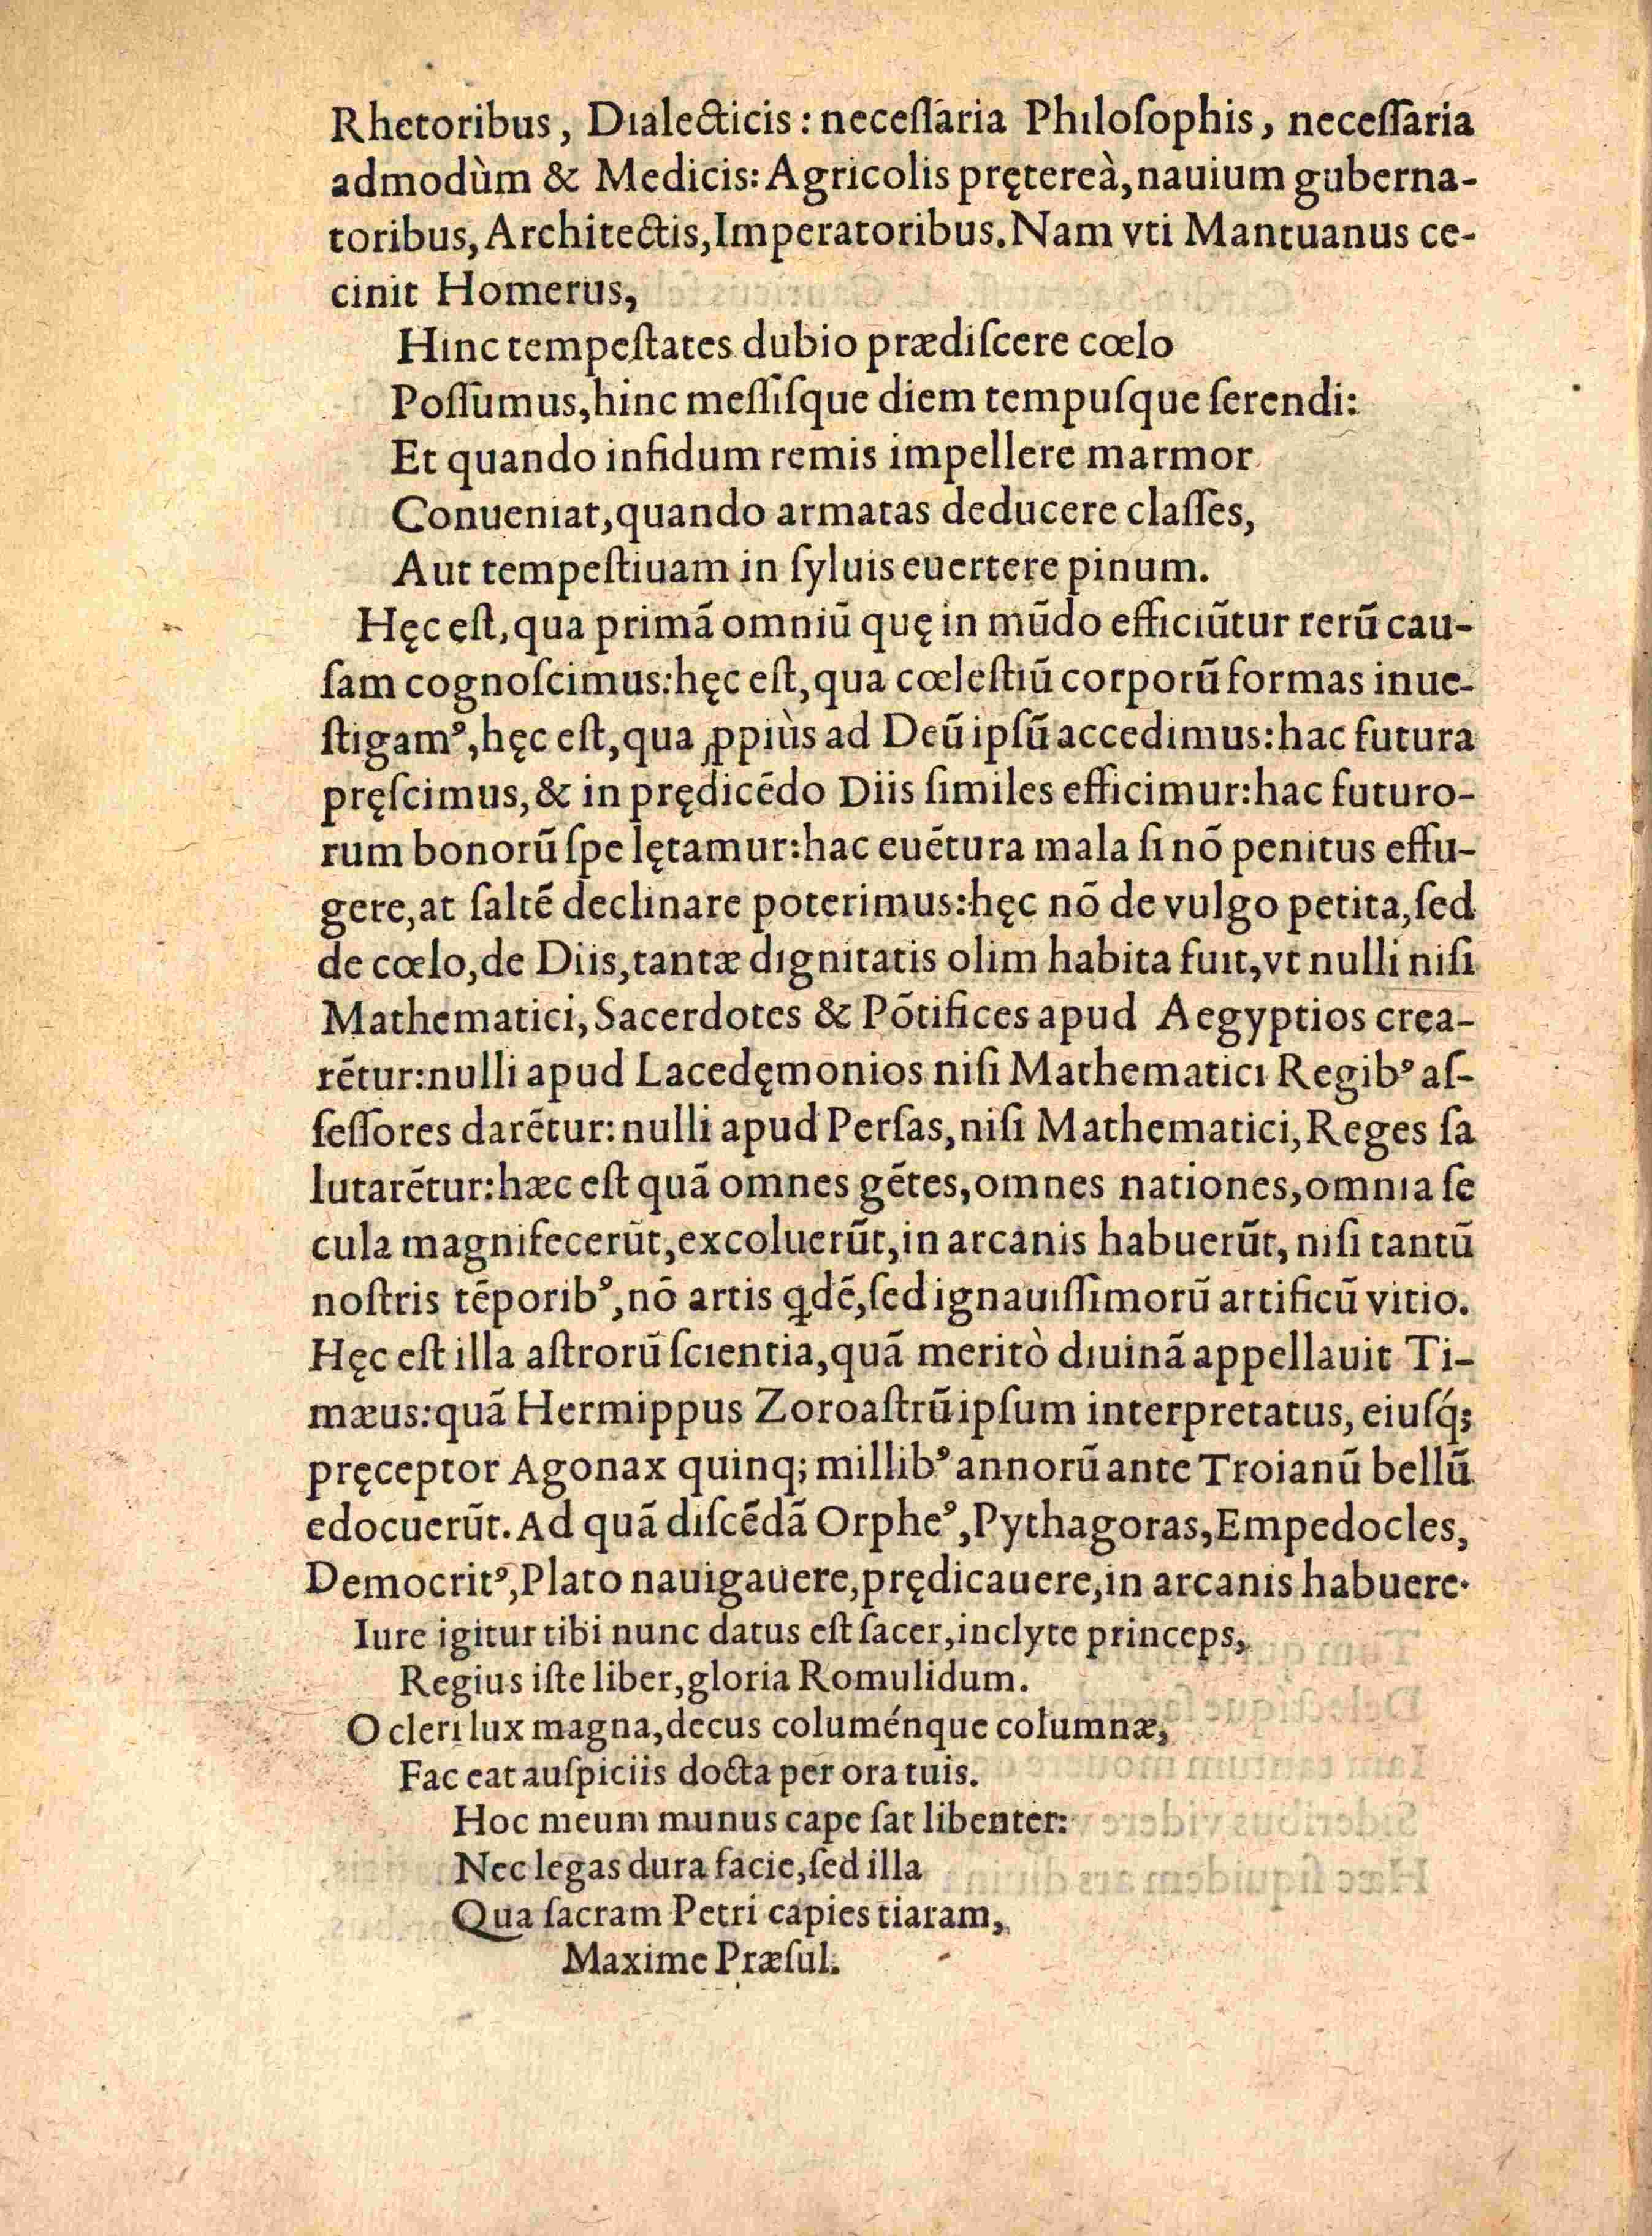 Rhetoribus, Dialecticis: neceſſaria Philoſophis, neceſſaria
admodùm & Medicis: Agricolis pręterea̓, nauium guberna-
toribus, Architectis, Imperatoribus. Nam vti Mantuanus ce-
cinit Homerus,
Hinc tempeſtates dubio prædiſcere cœlo
Poſſumus, hinc meſſiſque diem tempuſque ſerendi:
Et quando infidum remis impellere marmor
Conueniat, quando armatas deducere claſſes,
Aut tempeſtiuam in ſyluis euertere pinum.
Hęc eſt, qua primã omniũ quę in mũdo efficiũtur rerũ cau-
ſam cognoſcimus: hęc eſt, qua cœleſtiũ corporũ formas inue-
ſtigamꝰ, hęc eſt, qua ꝓpiùs ad Deũ ipſũ accedimus: hac futura
pręſcimus, & in prędicẽdo Diis ſimiles efficimur: hac futuro-
rum bonorũ ſpe lętamur: hac euẽtura mala ſi nõ penitus effu-
gere, at ſaltẽ declinare poterimus: hęc nõ de vulgo petita, ſed
de cœlo, de Diis, tantæ dignitatis olim habita fuit, vt nulli niſi
Mathematici, Sacerdotes & Põtifices apud Aegyptios crea-
rẽtur: nulli apud Lacedęmonios niſi Mathematici Regibꝰ aſ-
ſeſſores darẽtur: nulli apud Perſas, niſi Mathematici, Reges ſa
lutarẽtur: hæc eſt quã omnes gẽtes, omnes nationes, omnia ſe
cula magnifecerũt, excoluerũt, in arcanis habuerũt, niſi tantũ
noſtris tẽporibꝰ, nõ artis ꝗdẽ, ſed ignauiſſimorũ artificũ vitio.
Hęc eſt illa aſtrorũ ſcientia, quã meritò diuinã appellauit Ti-
mæus: quã Hermippus Zoroaſtrũ ipſum interpretatus, eiuſq́;
pręceptor Agonax quinq; millibꝰ annorũ ante Troianũ bellũ
edocuerũt. Ad quã diſcẽdã Orpheꝰ, Pythagoras, Empedocles,
Democritꝰ, Plato nauigauere, prędicauere, in arcanis habuere.
Iure igitur tibi nunc datus eſt ſacer, inclyte princeps,
Regius iſte liber, gloria Romulidum.
O cleri lux magna, decus columénque columnæ,
Fac eat auſpiciis docta per ora tuis.
Hoc meum munus cape ſat libenter:
Nec legas dura facie, ſed illa
Qua ſacram Petri capies tiaram,
Maxime Præſul.